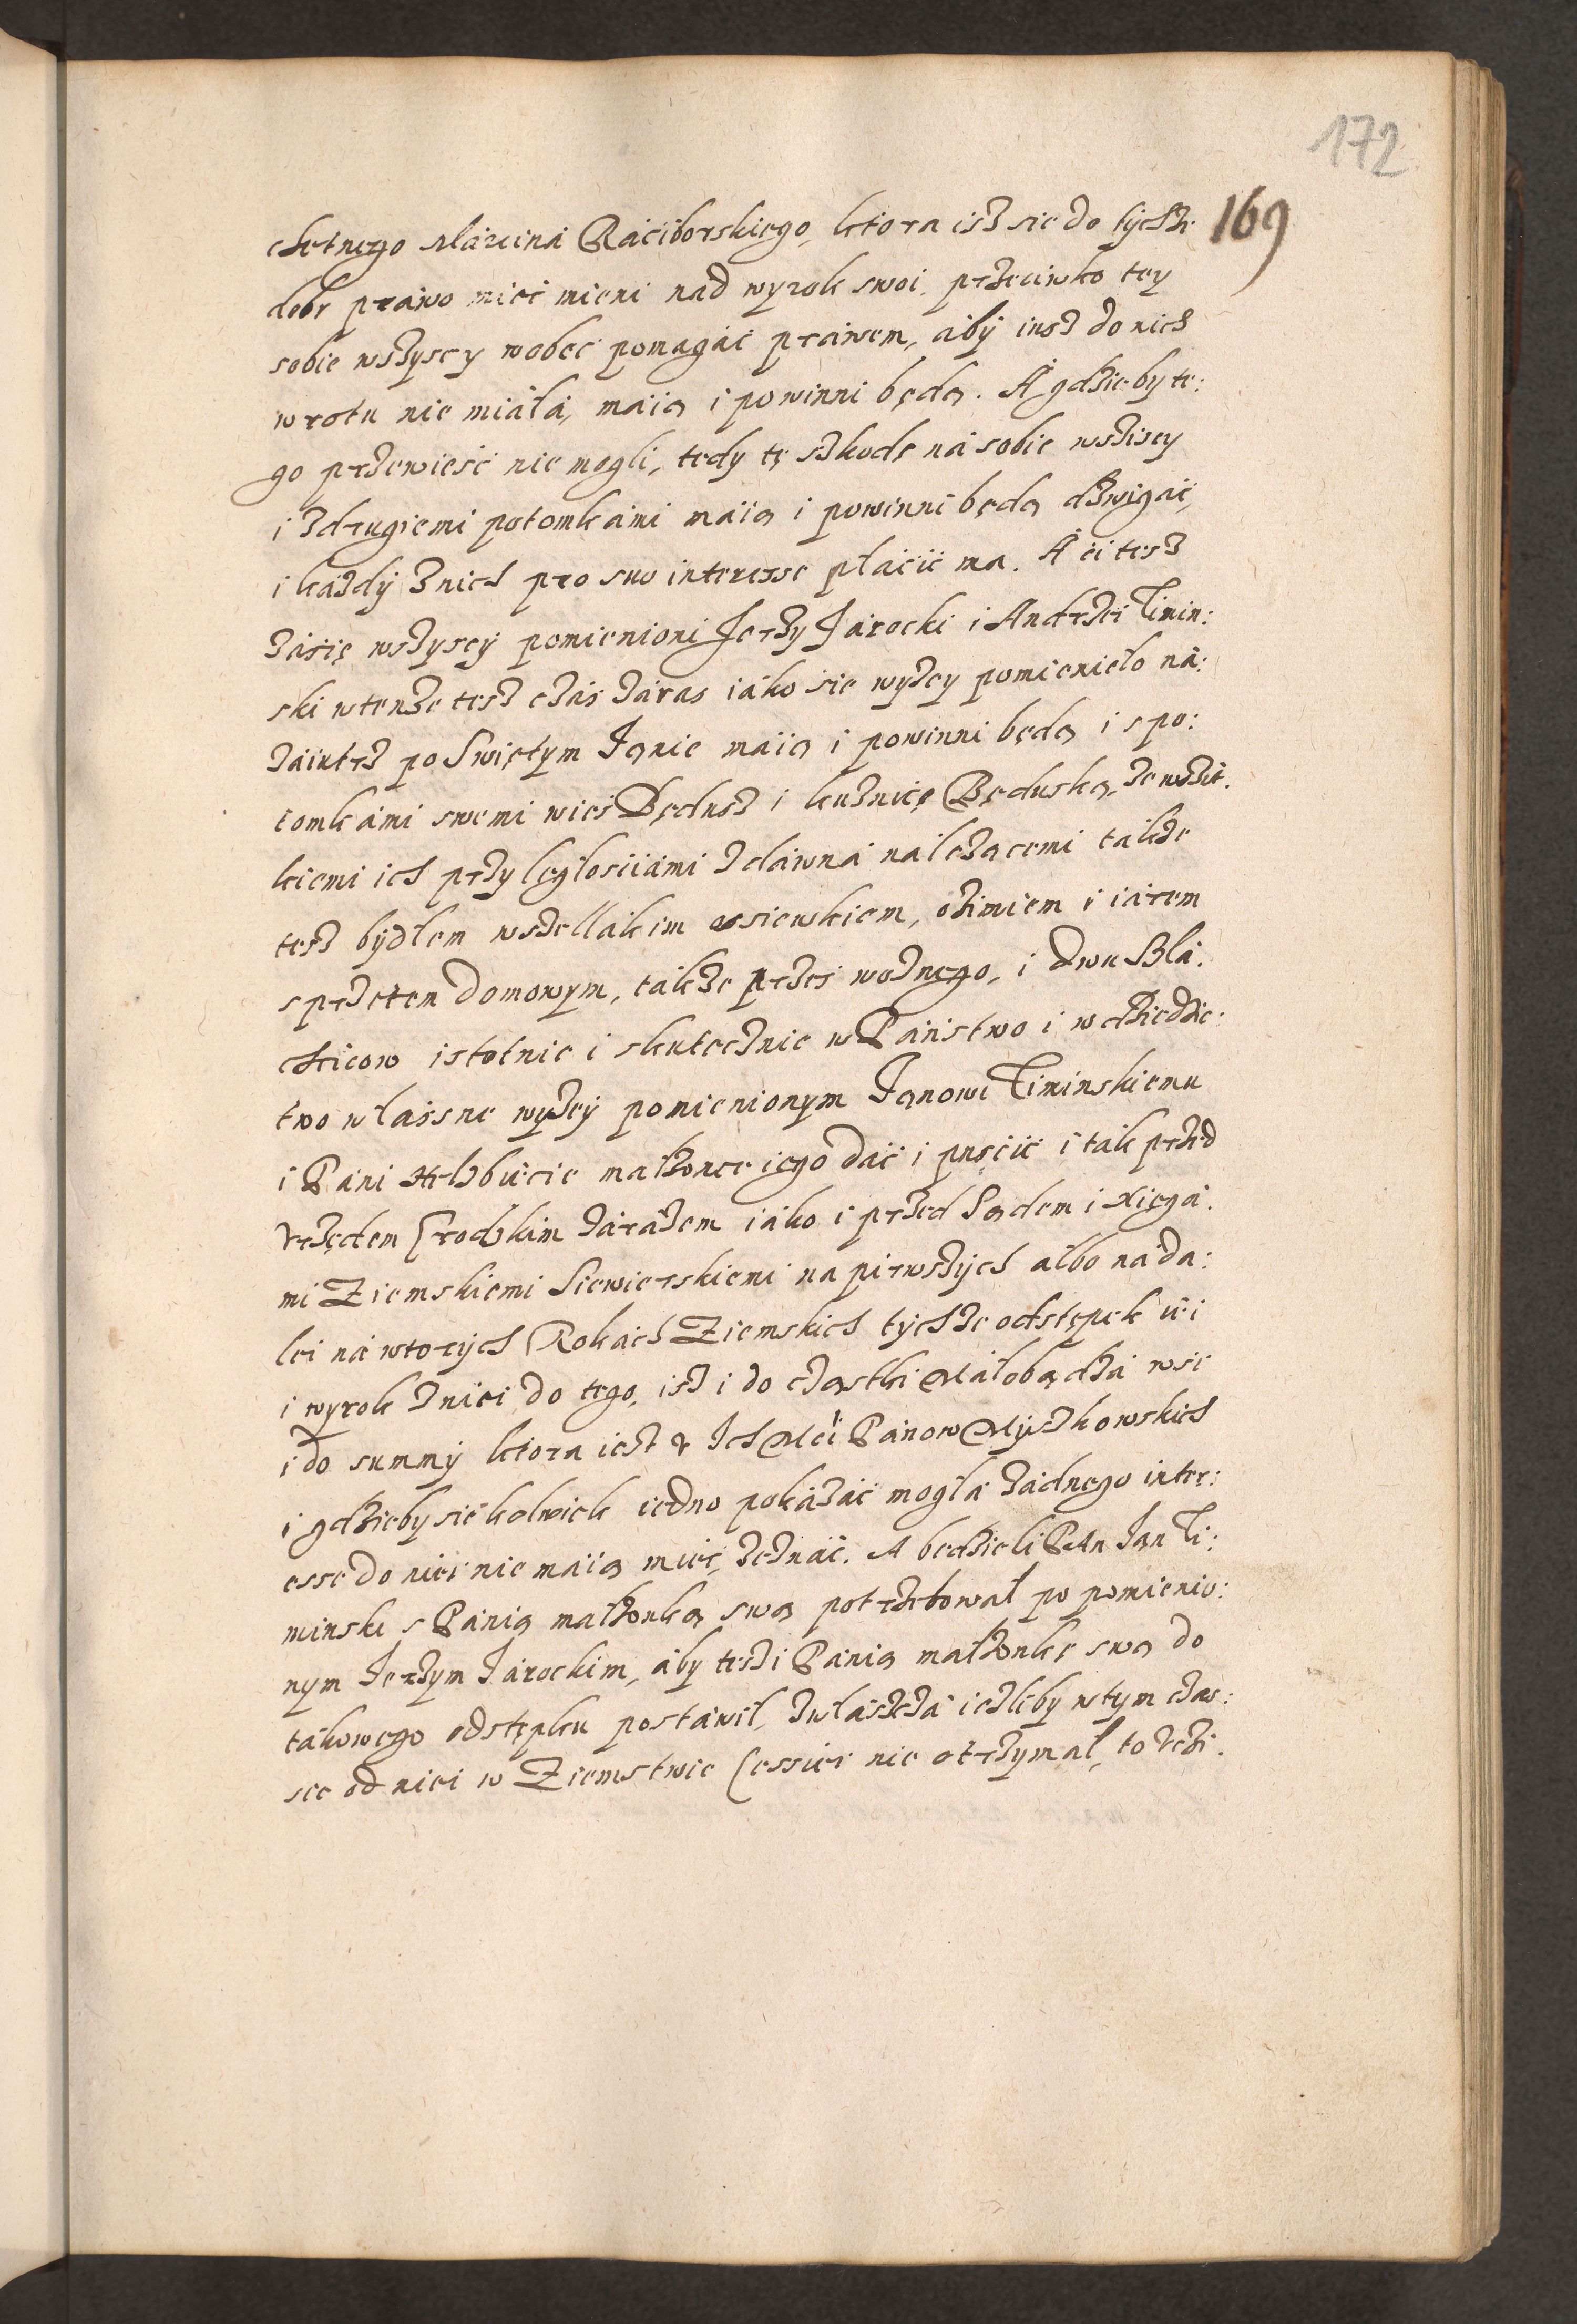 172
169
chetnego Marcina Raciborskiego, ktora isz sie do tychże
dobr prawo mieć mieni nad wyrok swoi, przeciwko tey
sobie wszyscy wobec pomagać prawem, aby iusz do nich
wrotu nie miała, maią i powinni będą. A gdzieby te:
go przewieść nie mogli, tedy tę szkodę na sobie wszyscy
i z drugiemi potomkami maią i powinni będą dzwigać,
i każdy z nich pro suo interesse płacić ma. A ci tesz
zasię wszyscy pomienioni Jerzy Jarocki i Andrzei Timin:
ski wtenże tesz czas zaras iako sie wyżey pomieniło na:
zaiutrz po Swiętym Janie maią i powinni będą i s po:
tomkami swemi wieś Będusz i kuznicę Będuską, ze wszit.
kiemi ich przyległosciami zdawna należącemi także
tesz bydłem wszellakim osiewkiem, oziмiem i iarem
sprzetem domowym, także przes woznego, i dwu Szla:
chcicow istotnie i skutecznie w Państwo i w dziedzic:
two własne wyżey pomienionym Janowi Timinskiemu
i Pani Helżbiecie małżonce iego dać i puścić i tak przed
Vrzędem Grodzkim zarazem iako i przed Sądem i Xięga:
mi Ziemskiemi Siewierskiemi na pirwszych albo na da:
lei na wtorych Rokach Ziemskich tychże odstępek iei
i wyrok znici do tego, isz i do cząstki Małobądza wsi
i do summy ktora iest v Ich Mci Panow Myszkowskich
i gdzieby sie kolwiek iedno pokazać mogła żadnego inter:
esse do niei nie maią mieć, zeznać. A będzieli Pan Jan Ti:
minski s Panią małżonką swą potrzebował po pomienio:
nym Jerzym Jarockim, aby tesz i Panią małżonkę swą do
takowego odstępku postawił, zwłaszcza iezliby w tym czas:
sie od niei w Ziemstwie Cessiei nie otrzymał, to